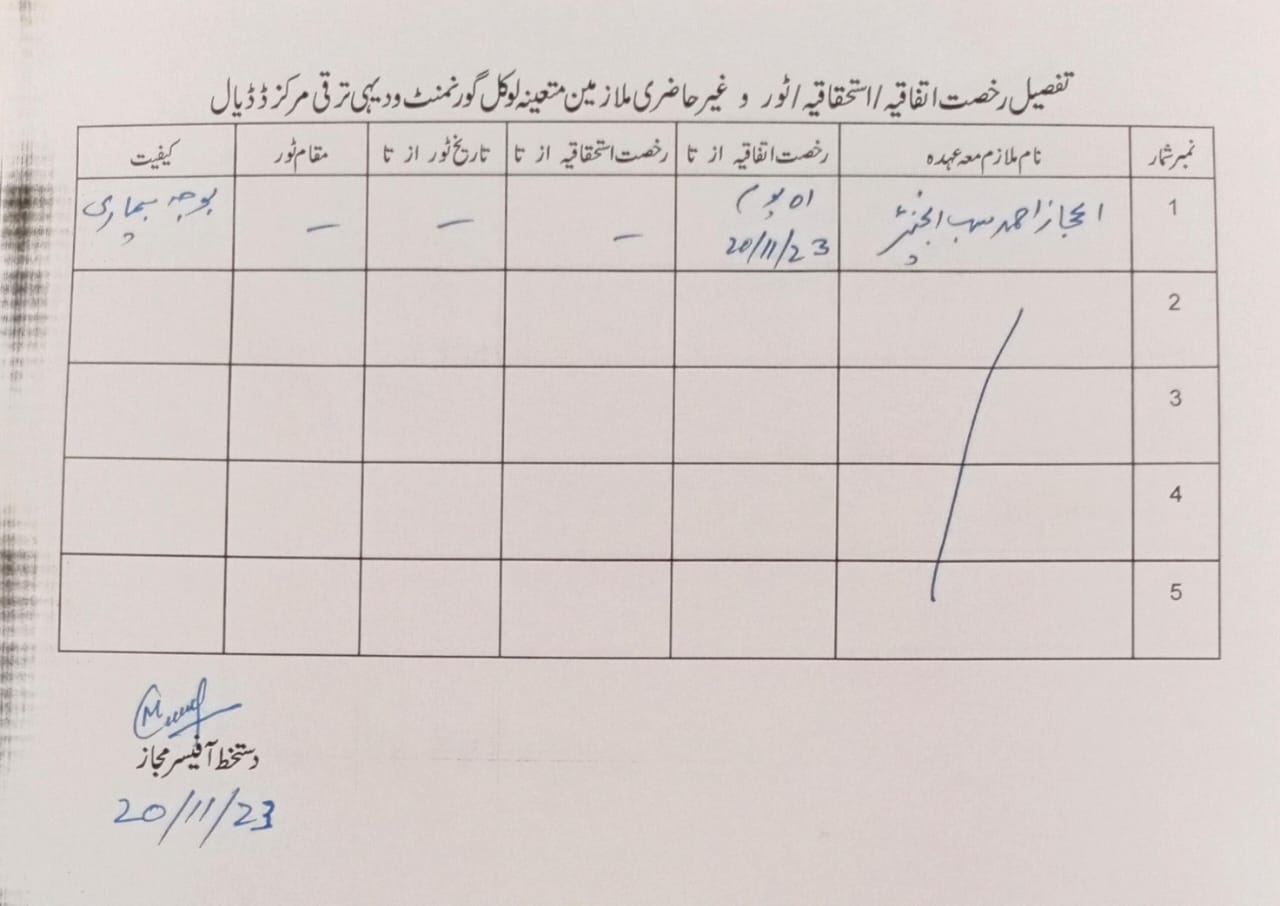 تفصیل رخصت اتفاقیہ/استحقاقیہ/ٹور و غیر حاضری ملازمین متعینہ لوکل گورنمنٹ و دیہی ترقی مرکز ڈڈیال
نمبر شمار نام ملازم معہ عہدہ رخصت اتفاقیہ از تا رخصت استحقاقیہ از تا تاریخ ٹور از تا مقام ٹور کیفیت
1 اعجاز احمد سب انجنیئر 01 یوم – – – بوجہ بیماری
20/11/23
2
3
4
5
دستخط آفیسر مجاز
20/11/23